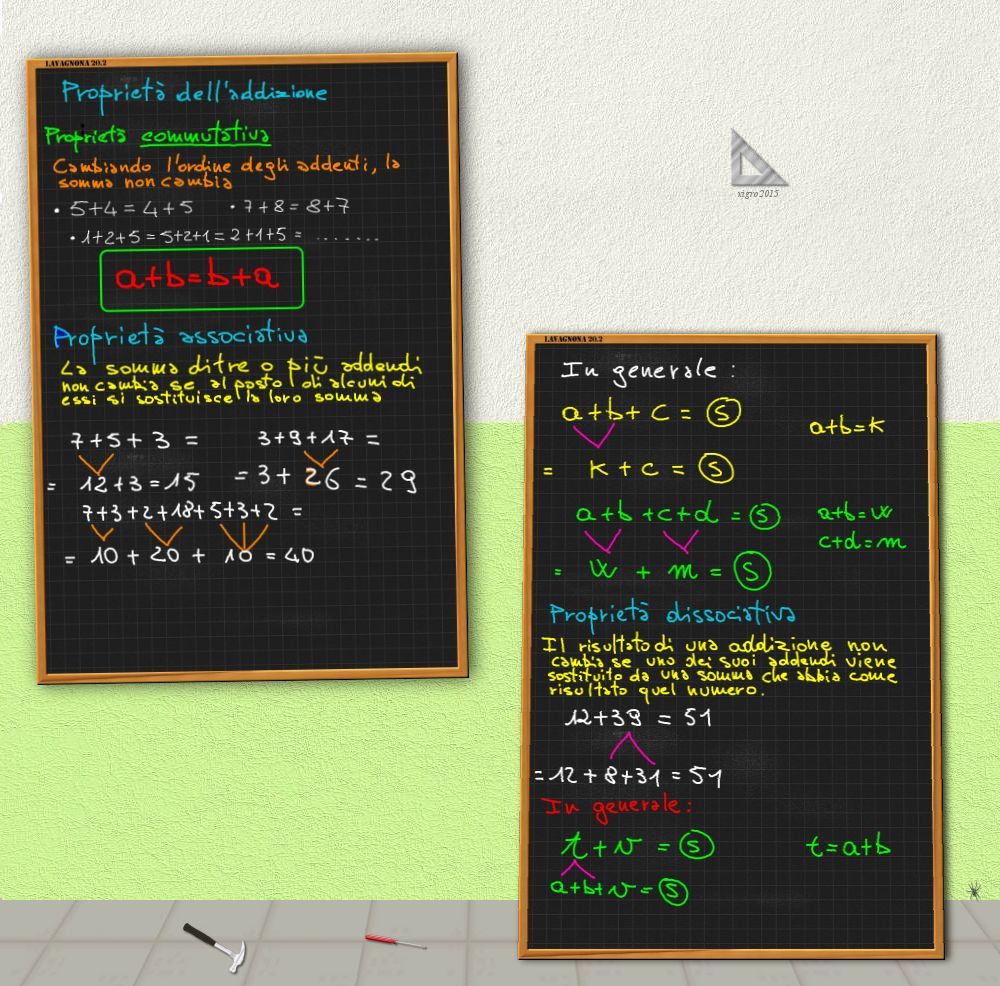 LAVAGNONA 20.2
Proprietà dell'addizione
Proprietà commutativa
Cambiando l'ordine degli addenti, la
somma non cambia
• 5+4 = 4+5 • 7+8 = 8+7
• 1+2+5 = 5+2+1 = 2+1+5 = .......
a+b=b+a
Proprietà associativa
La somma di tre o più addendi
non cambia se al posto di alcuni di
essi si sostituisce la loro somma
7+5+3 = 3+9+17 =
= 12+3=15 = 3+26 = 29
7+3+2+18+5+3+2 =
= 10+20+10=40
xigro 2015
LAVAGNONA 20.2
In generale:
a+b+c = S a+b=k
= k+c = S
a+b+c+d = S a+b=w
c+d=m
= w+m = S
Proprietà dissociativa
Il risultato di una addizione non
cambia se uno dei suoi addendi viene
sostituito da una somma che abbia come
risultato quel numero.
12+39 = 51
=12+8+31=51
In generale:
t+v = S t=a+b
a+b+v=S